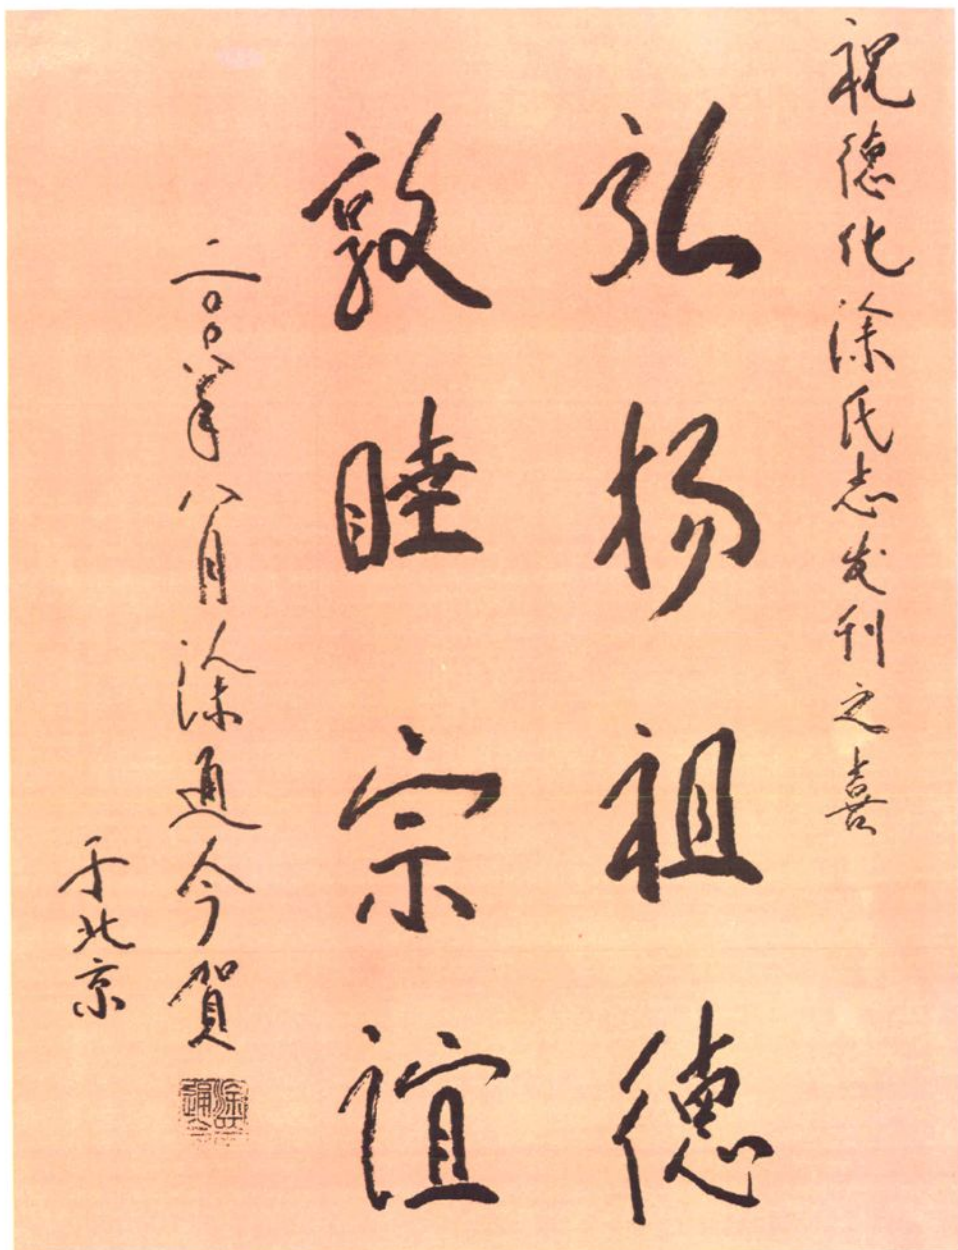 祝德化涂氏志发刊之喜
弘扬祖德
敦睦宗谊
二〇〇八年八月涂通今贺
于北京
涂通今